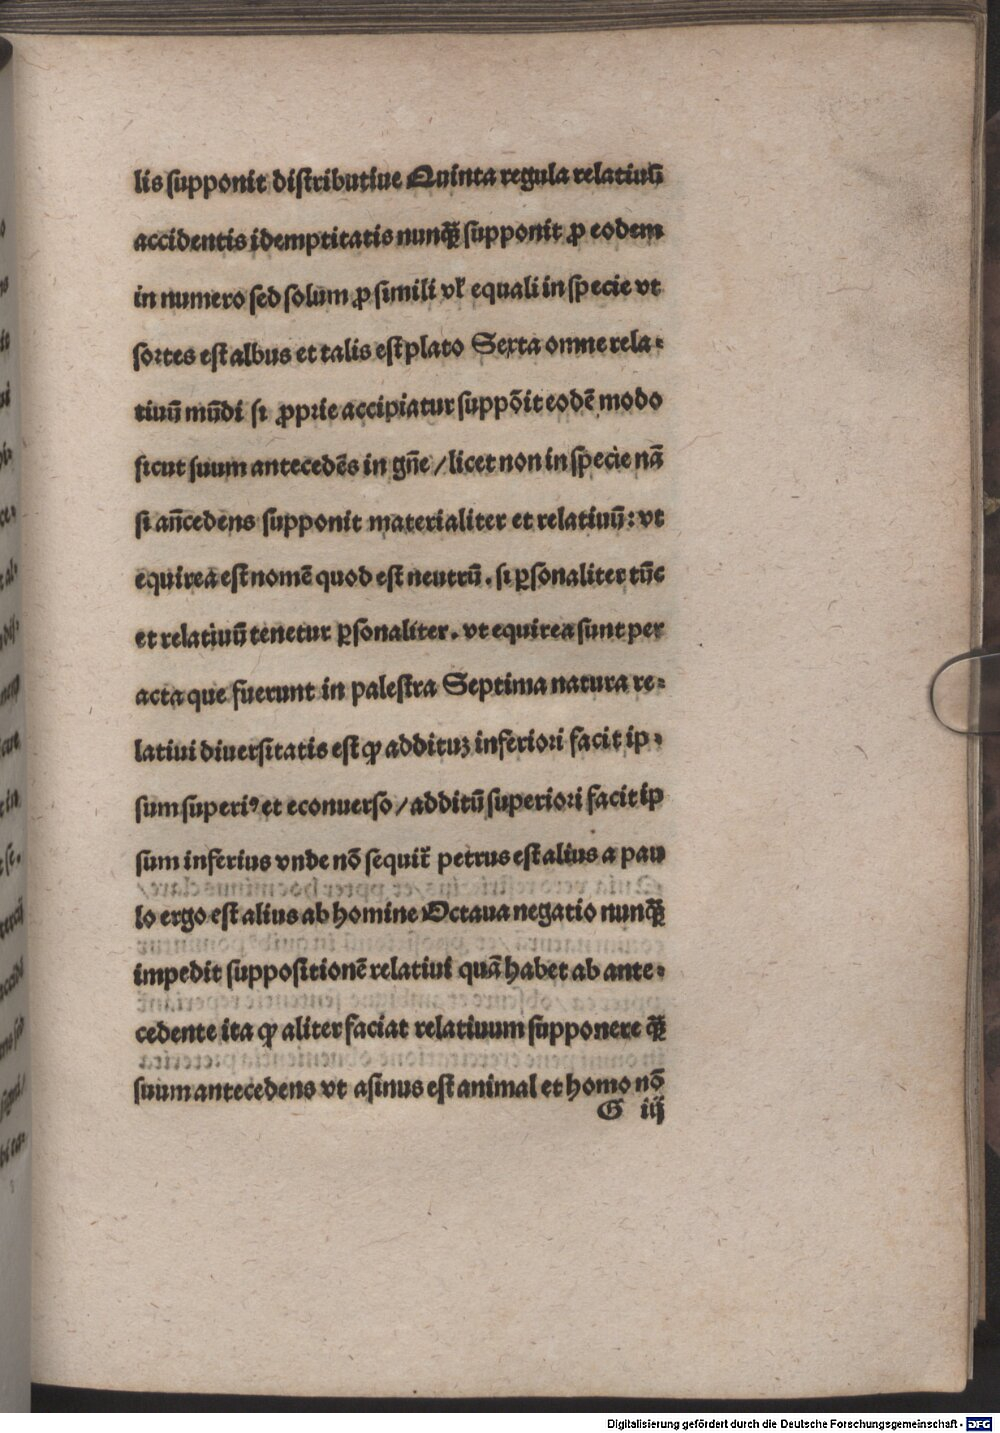 lis ſupponit diſtributiue Quinta regula relatiuū
accidentis idemptitatis nunꝙ̄ ſupponit ꝓ eodem
in numero ſed ſolum ꝓ ſimili vꝉ equali in ſpecie vt
ſoꝛtes eſt albus et talis eſt plato Sexta omne rela⸗
tiuū mūdi ſi ꝓpꝛie accipiatur ſuppōit eodē modo
ſicut ſuum antecedēs in gn̄e / licet non in ſpecie nā
ſi an̄cedens ſupponit materialiter et relatiuū: vt
equirea eſt nomē quod eſt neutrū. ſi ꝑſonaliter tūc
et relatiuū tenetur ꝑſonaliter. vt equirea ſunt per
acta que fuerunt in paleſtra Septima natura re⸗
latiui diuerſitatis eſt ꝙ addituꝫ inferioꝛi facit ip⸗
ſum ſuperiꝰ et econuerſo / additū ſuperioꝛi facit ip
ſum inferius vnde nō ſequit᷑ petrus eſt alius a pau
lo ergo eſt alius ab homine Octaua negatio nunꝙ̄
impedit ſuppoſitionē relatiui quā habet ab ante⸗
cedente ita ꝙ aliter faciat relatiuum ſupponere ꝙ̄
ſuum antecedens vt aſinus eſt animal et homo nō
G iij
Digitalisierung gefördert durch die Deutsche Forschungsgemeinschaft - DFG